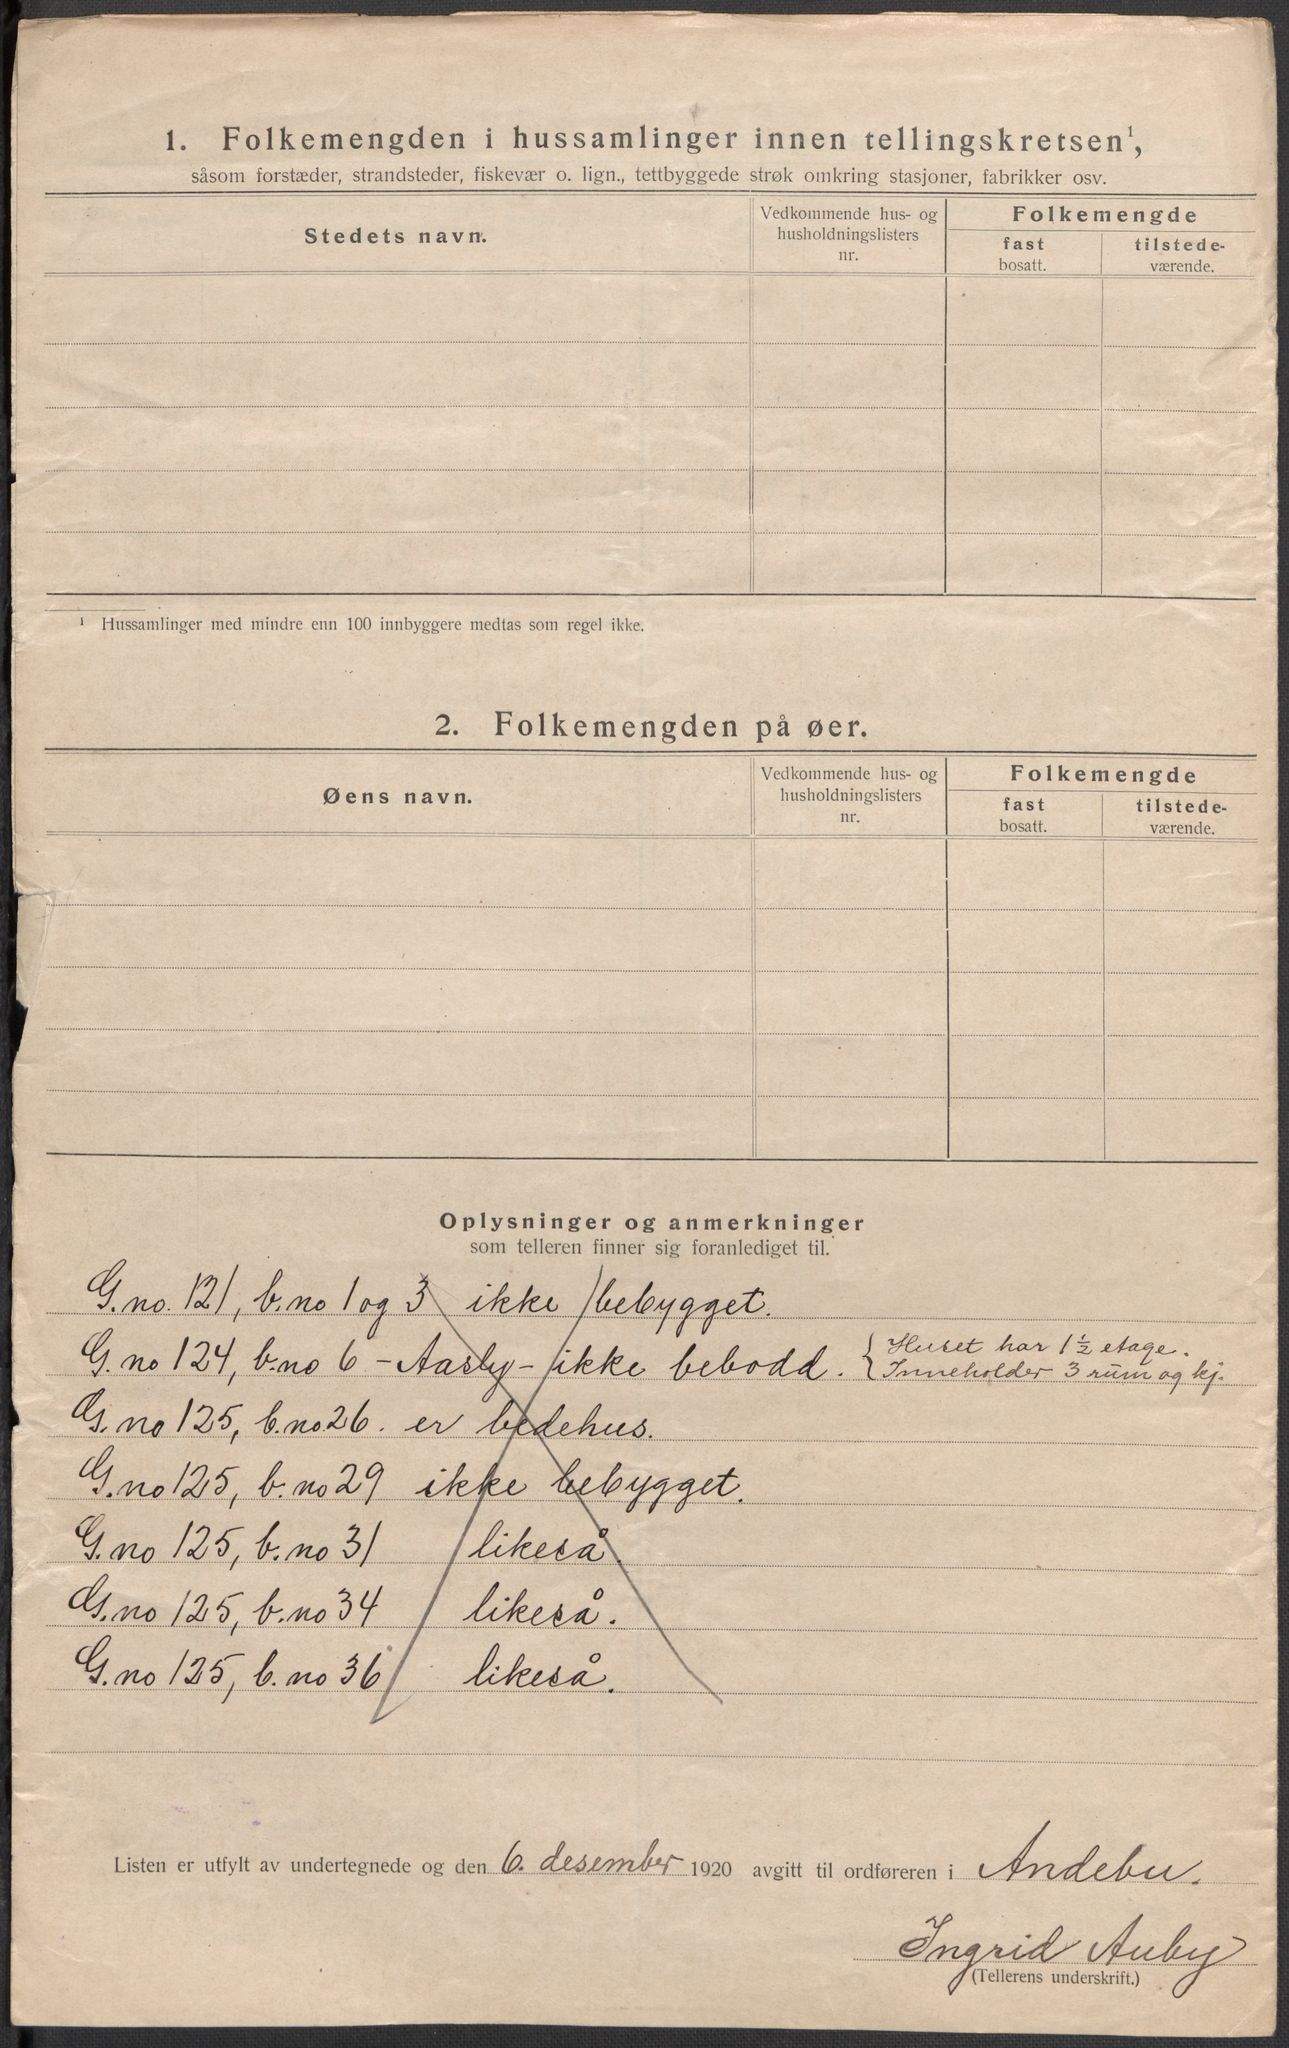 1. Folkemengden i hussamlinger innen tellingskretsen¹,
såsom forstæder, strandsteder, fiskevær o. lign., tettbyggede strøk omkring stasjoner, fabrikker osv.
Stedets navn.
Vedkommende hus- og
husholdningslisters
nr.
Folkemengde
fast
bosatt.
tilstede-
værende.
¹ Hussamlinger med mindre enn 100 innbyggere medtas som regel ikke.
2. Folkemengden på øer.
Øens navn.
Vedkommende hus- og
husholdningslisters
nr.
Folkemengde
fast
bosatt.
tilstede-
værende.
Oplysninger og anmerkninger
som telleren finner sig foranlediget til.
G.no. 121, b.no 1 og 3 ikke bebygget.
G.no 124, b.no 6 - Aasby - ikke bebodd. { Huset har 1½ etage.
Inneholder 3 rum og kj.
G.no 125, b.no 26. er bedehus.
G.no 125, b.no 29 ikke bebygget.
G.no 125, b.no 31 likeså.
G.no 125, b.no 34 likeså.
G.no 125, b.no 36 likeså.
Listen er utfylt av undertegnede og den 6. desember 1920 avgitt til ordføreren i Andebu.
Ingrid Auby
(Tellerens underskrift.)